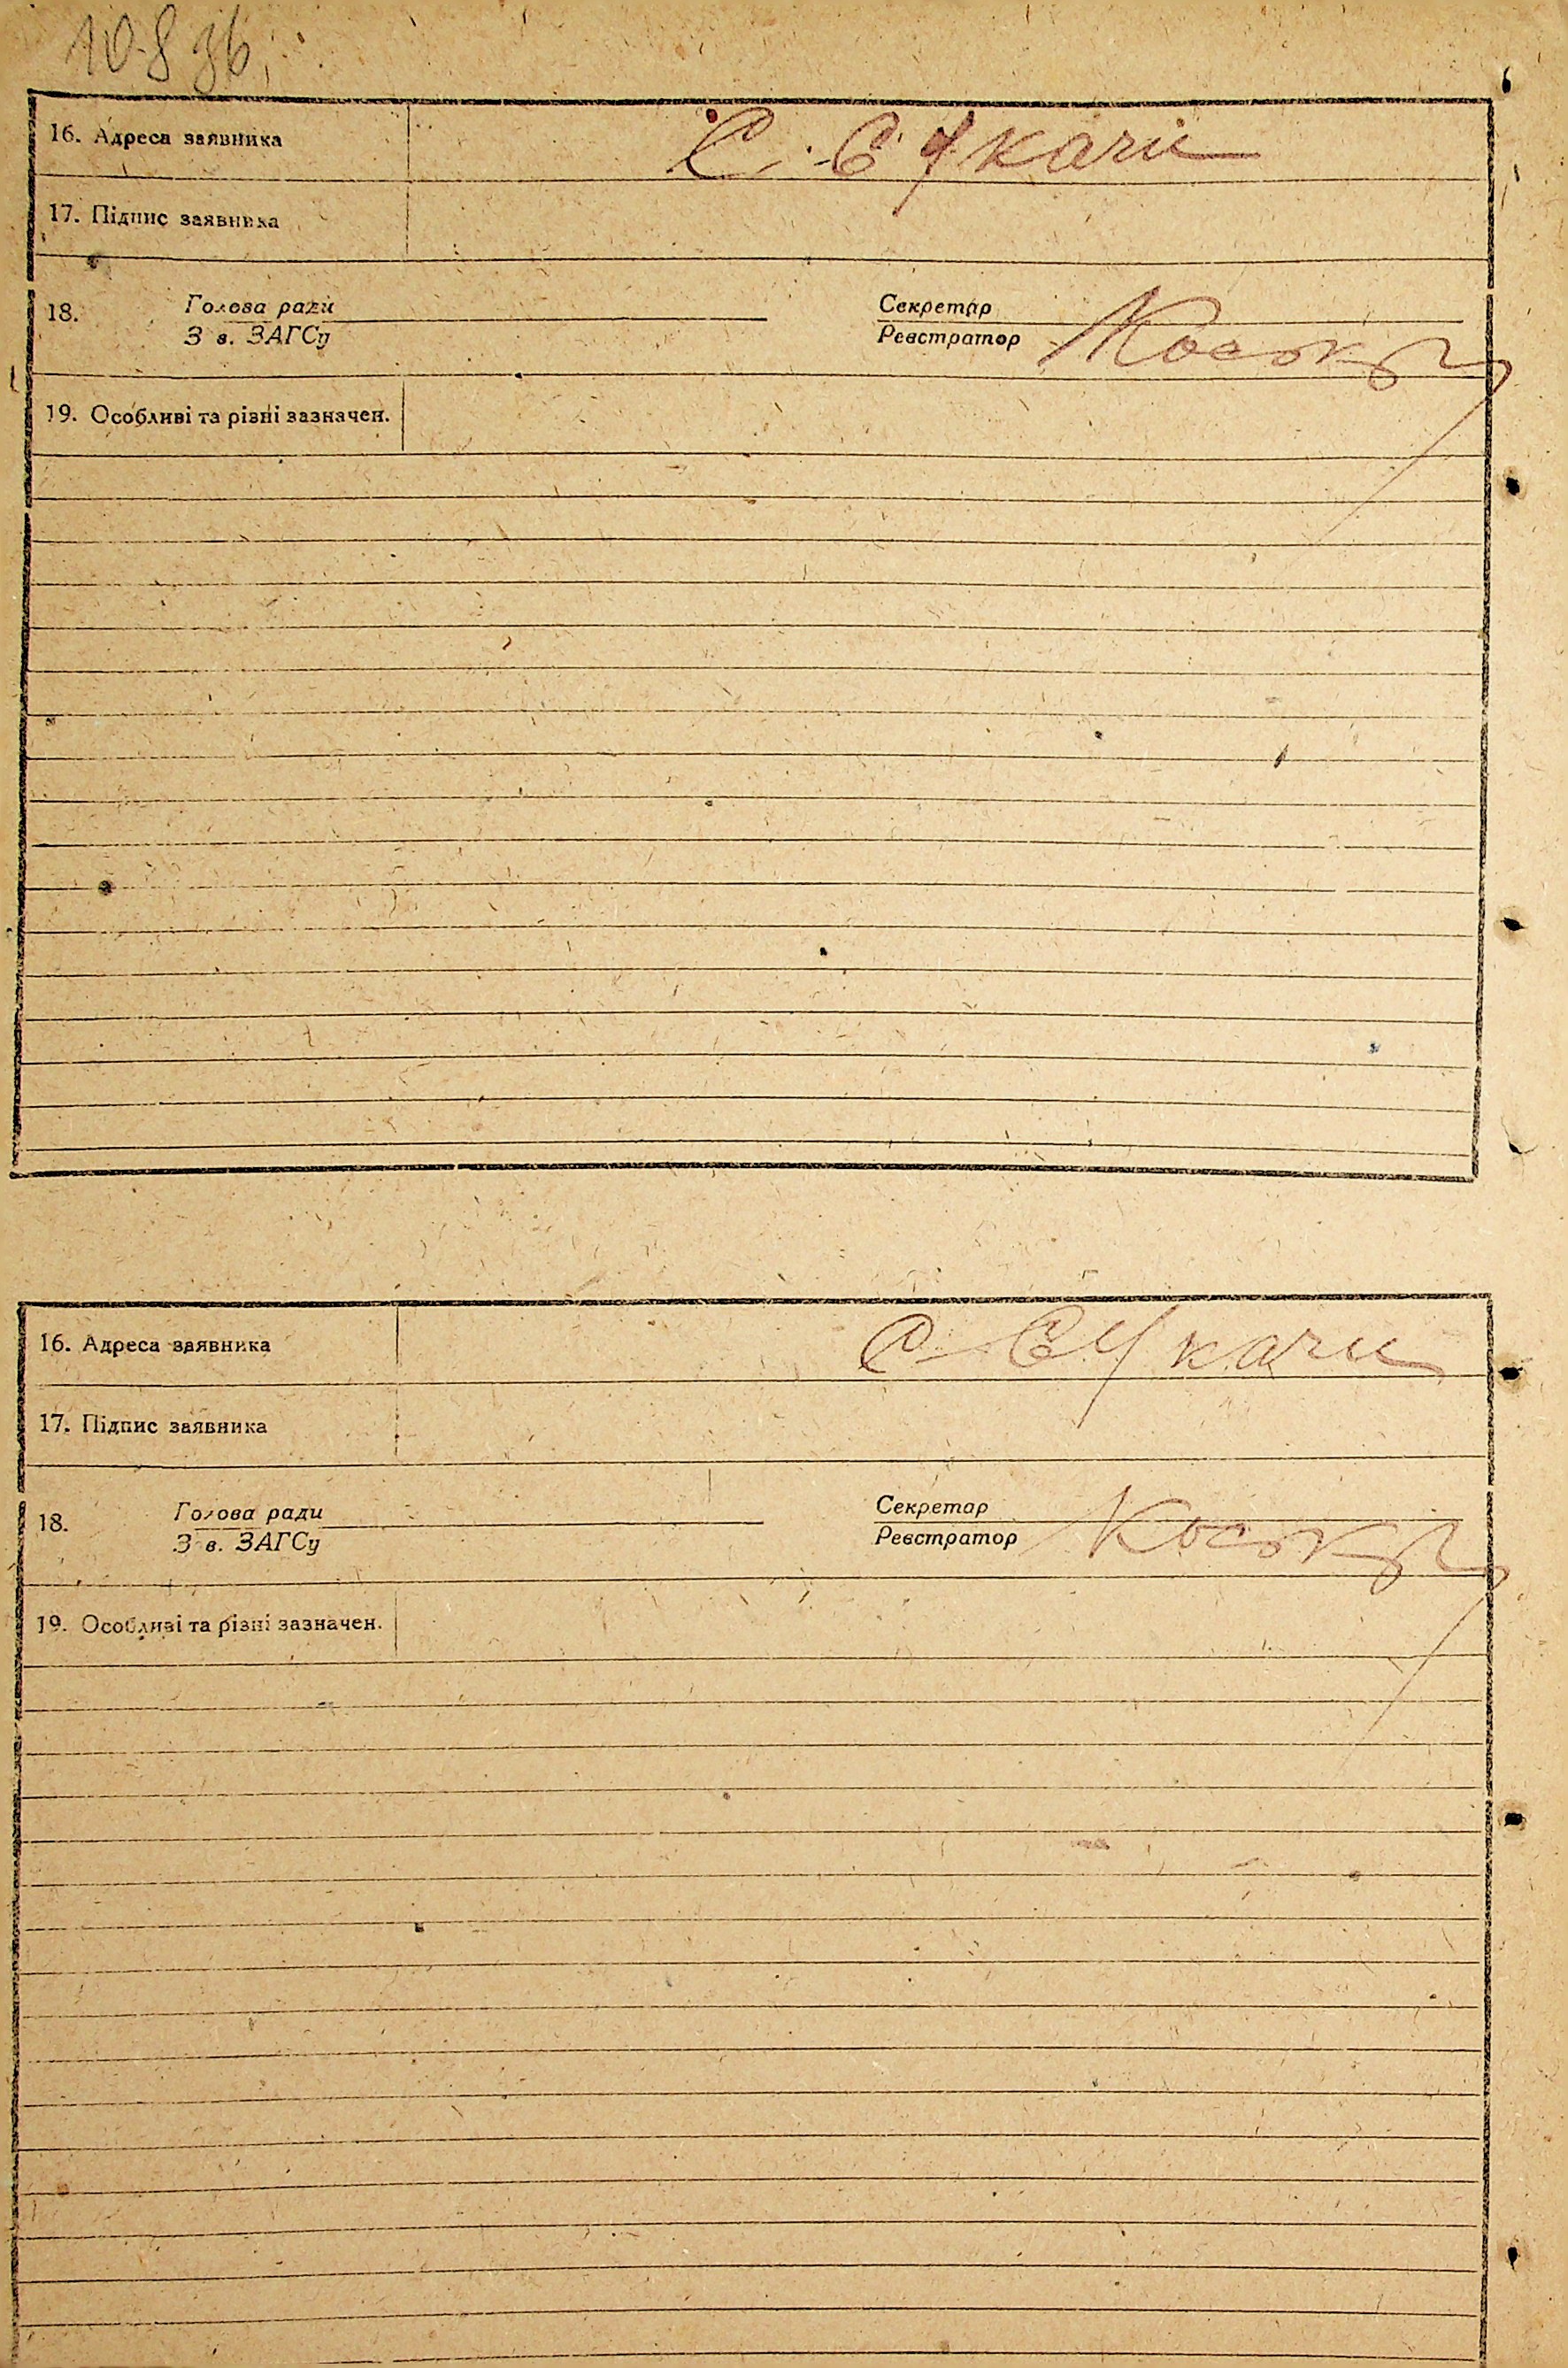 10-8 36
16. Адреса заявника С. Сукачи
17. Підпис заявника
18. Голова ради Секретар
З в. ЗАГСу Реєстратор
19. Особливі та різні зазначен.
16. Адреса заявника С. Сукачи
17. Підпис заявника
18. Голова ради Секретар
З в. ЗАГСу Реєстратор
19. Особливі та різні зазначен.